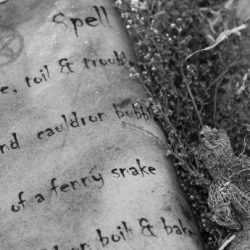 Spell
toil & trouble
cauldron bubble
of a fenny snake
boil & bake